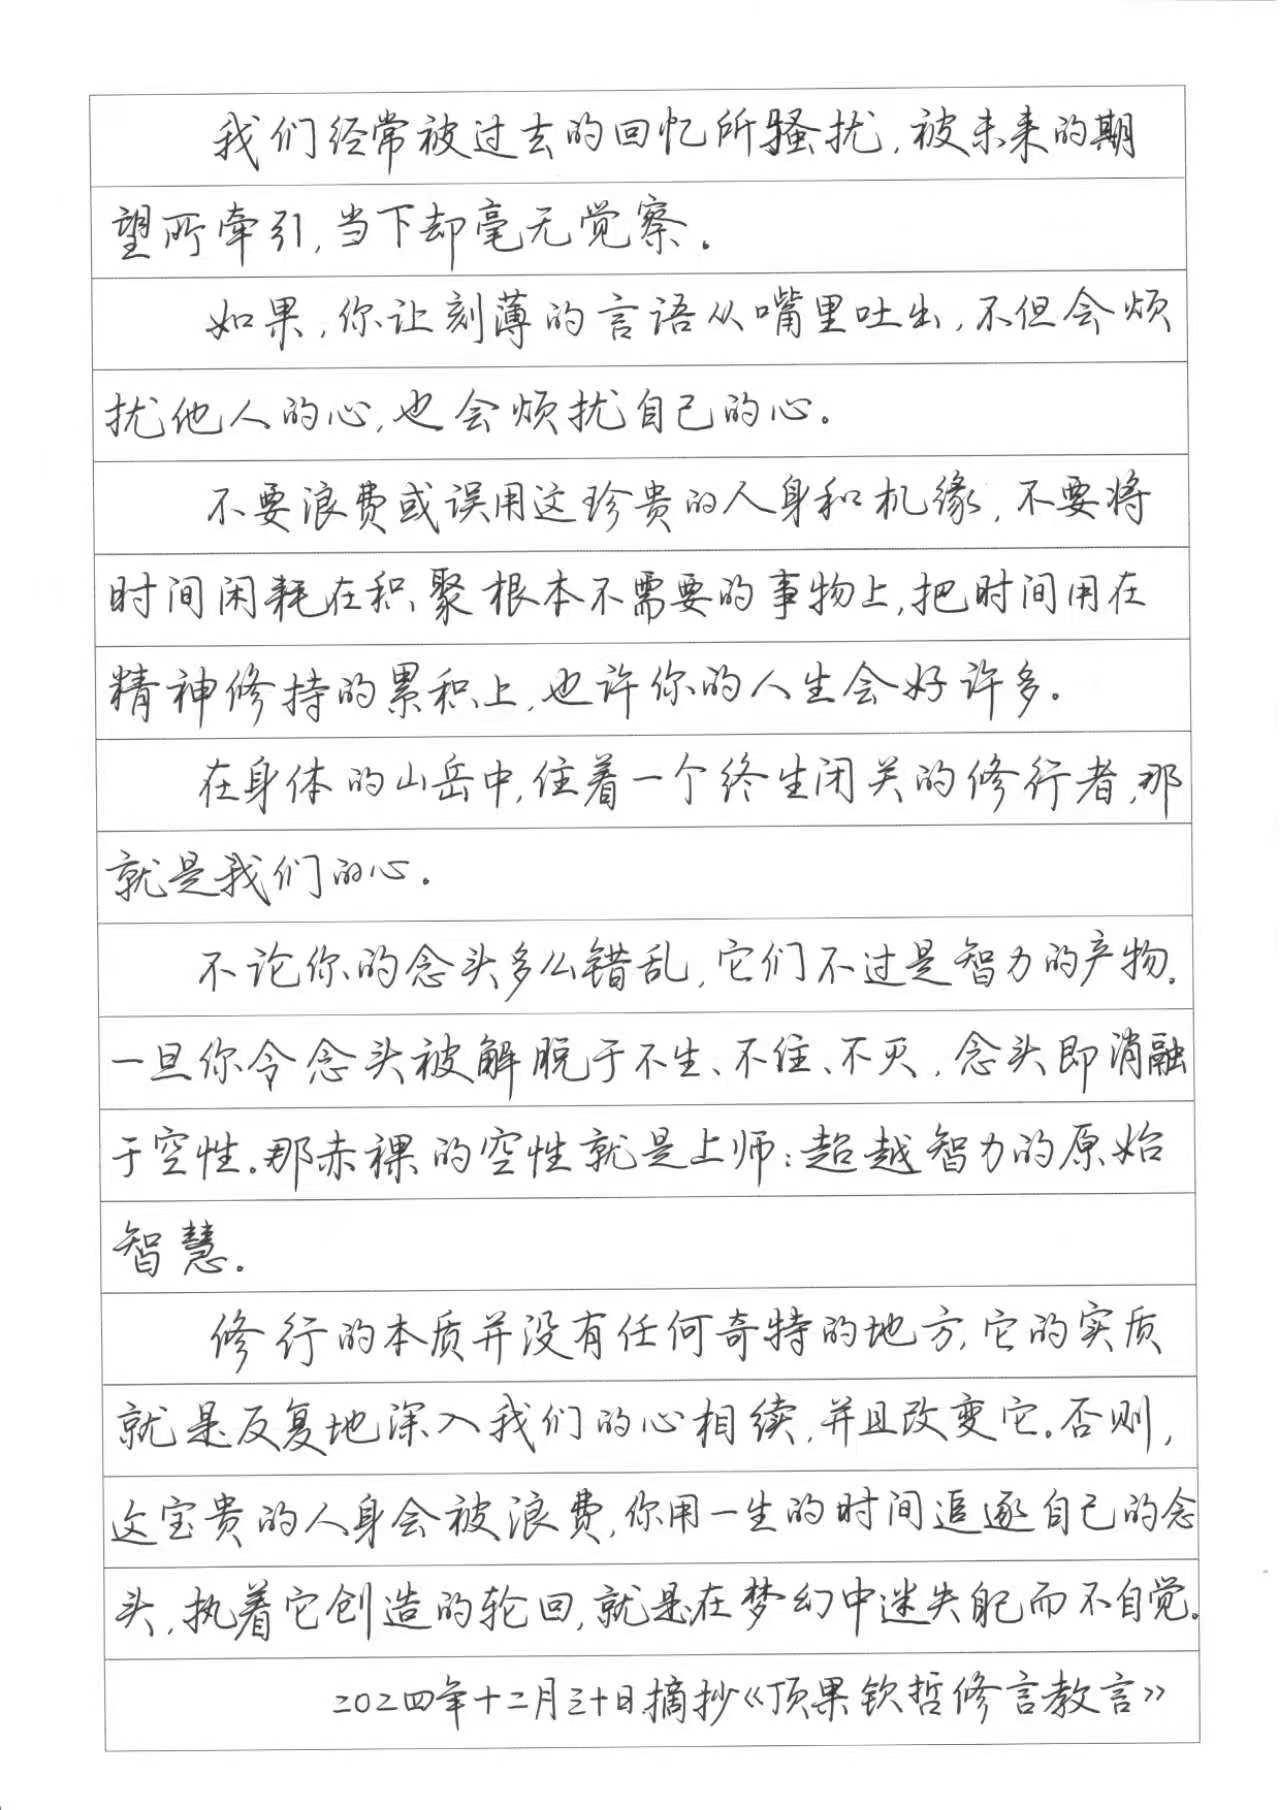 我们经常被过去的回忆所骚扰，被未来的期
望所牵引，当下却毫无觉察。
如果，你让刻薄的言语从嘴里吐出，不但会烦
扰他人的心，也会烦扰自己的心。
不要浪费或误用这珍贵的人身和机缘，不要将
时间闲耗在积聚根本不需要的事物上，把时间用在
精神修持的累积上，也许你的人生会好许多。
在身体的山岳中，住着一个终生闭关的修行者，那
就是我们的心。
不论你的念头多么错乱，它们不过是智力的产物。
一旦你令念头被解脱于不生、不住、不灭，念头即消融
于空性。那赤裸的空性就是上师：超越智力的原始
智慧。
修行的本质并没有任何奇特的地方，它的实质
就是反复地深入我们的心相续，并且改变它。否则，
这宝贵的人身会被浪费，你用一生的时间追逐自己的念
头，执着它创造的轮回，就是在梦幻中迷失自己而不自觉。
二〇二四年十二月三十日摘抄《顶果钦哲修言教言》